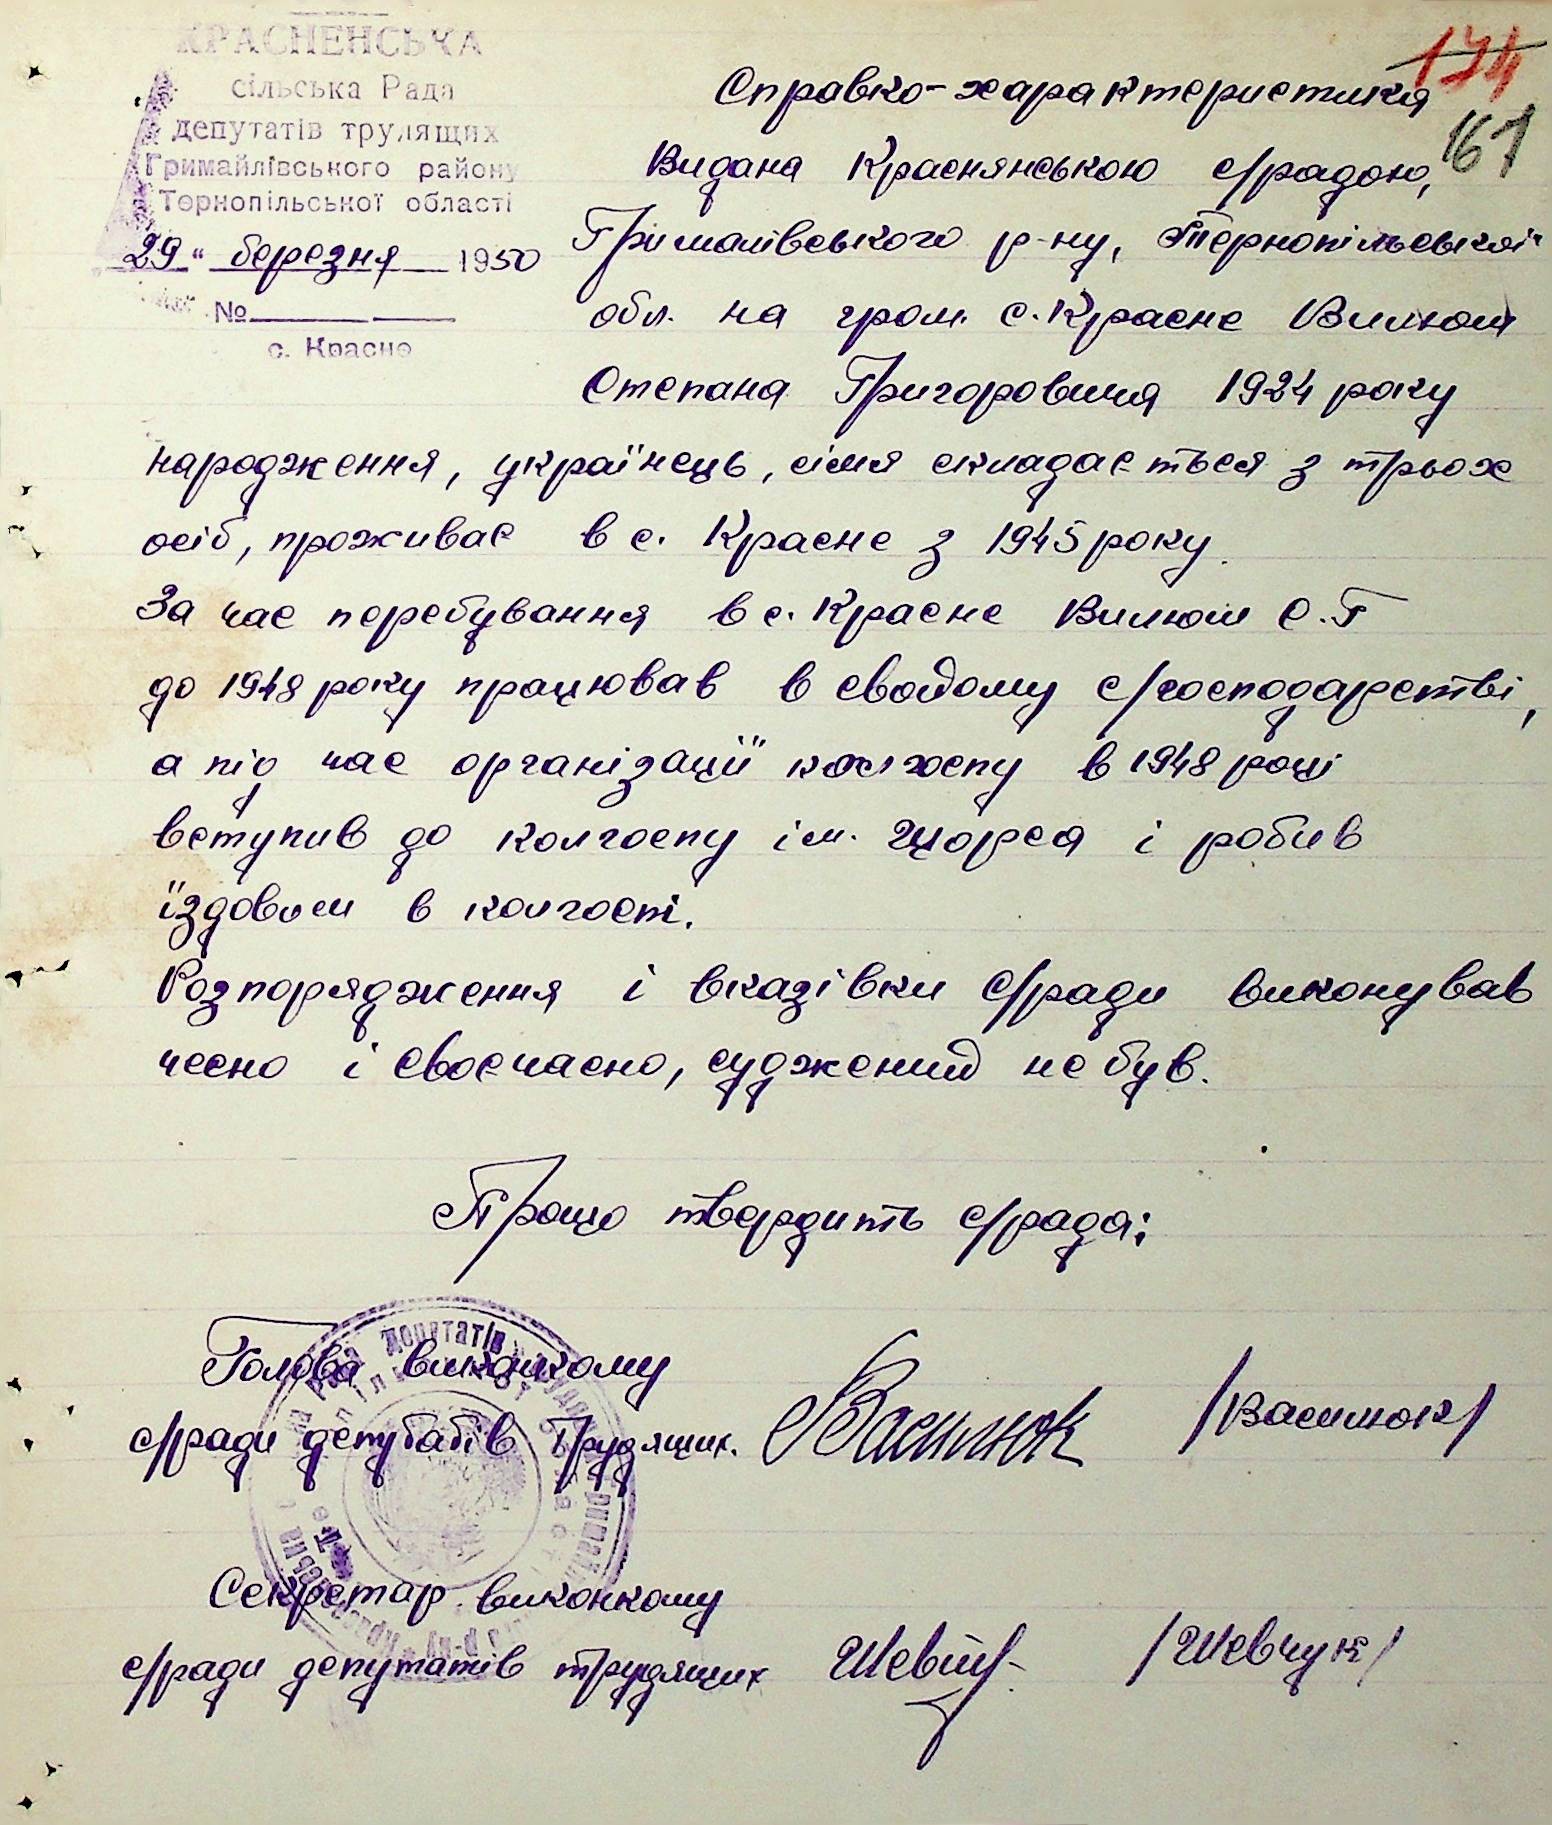 КРАСНЕНСЬКА
сільська Рада
депутатів трудящих
Гримайлівського району
Тернопільської області
29 " березня 1950
№
с. Красне
174
161
Справко-характеристика
Видана Краснянською с/радою,
Грималівського р-ну, Тернопільської
обл. на гром. с. Красне Вилюш
Степана Григоровича 1924 року
народження, українець, сімя складається з трьох
осіб, проживає в с. Красне з 1945 року.
За час перебування в с. Красне Вилюш С.Г
до 1948 року працював в свойому с/господарстві,
а під час організації колгоспу в 1948 році
вступив до колгоспу ім. Щорса і робив
їздовим в колгоспі.
Розпорядження і вказівки с/ради виконував
чесно і своєчасно, суджений не був.
Прощо твердить с/рада:
Голова виконкому
с/ради депутатів трудящих. Василюк /Василюк/
Секретар виконкому
с/ради депутатів трудящих /Шевчук/